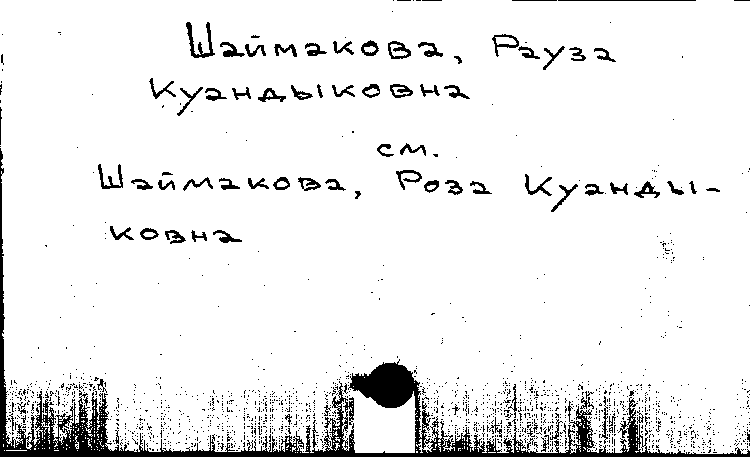 Шаймакова, Рауза
Куандыковна
см.
Шаймакова, Роза Куанды-
ковна